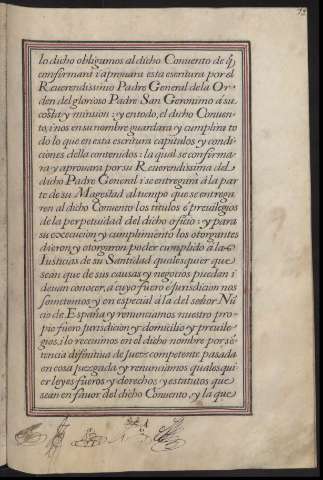 lo dicho obligamos al dicho Conuento de q̃
confirmara i aprouara esta escritura por el
Reuerendissimo Padre General de la Or-
den del glorioso Padre San Geronimo á su
costa y minsion: y en todo, el dicho Conuen-
to, i nos en su nombre guardara y cumplira to
do lo que en esta escritura capitulos y condi-
ciones della contenidos: la qual se confirma-
ra y aprouara por su Reuerendissima del
dicho Padre General i se entregará á la par
te de su Magestad al tiempo que se entrega-
ren al dicho Conuento los titulos é preuilegios
de la perpetuidad del dicho oficio: y para
su execucion y cumplimiento los otorgantes
dieron, y otorgaron poder cumplido á las
Iusticias de su Santidad qualesquier que
sean que de sus causas y negocios puedan i
deuan conocer, a cuyo fuero é jurisdicion nos
sometemos y en especial á la del señor Nū
cio de España y renunciamos nuestro pro-
pio fuero jurisdicion y domicilio y preuile-
gios: i lo receuimos en el dicho nombre por sē
tencia difinitiua de juez competente pasada
en cosa juzgada y renunciamos qualesqui
er leyes fueros y derechos y estatutos que
sean en fauor del dicho Conuento, y la que